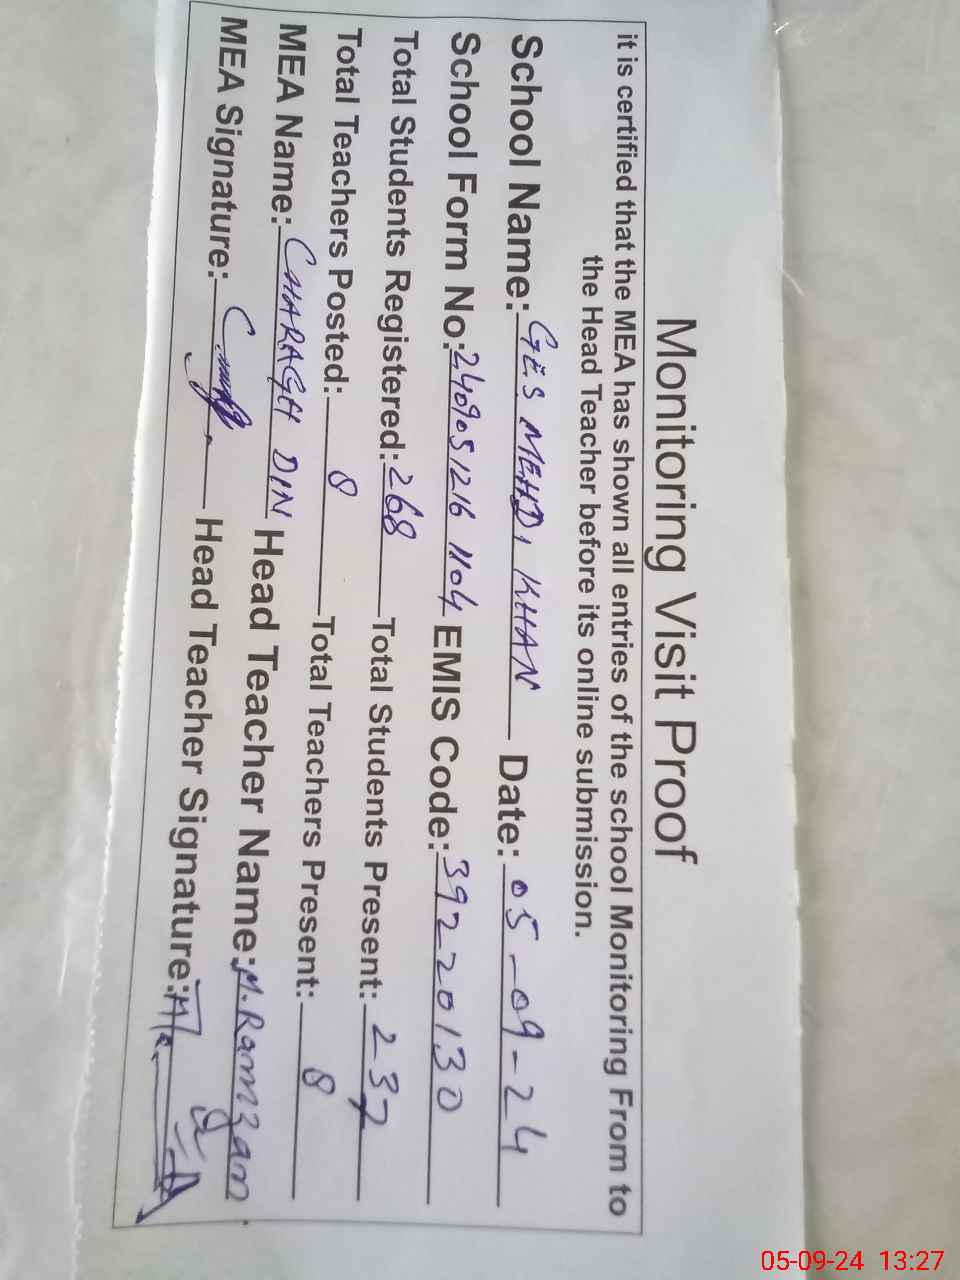 Monitoring Visit Proof
it is certified that the MEA has shown all entries of the school Monitoring From to
the Head Teacher before its online submission.
School Name: GES MEHDI KHAN Date: 05-09-24
School Form No: 2409051216 1104 EMIS Code: 39220130
Total Students Registered: 268 Total Students Present: 237
Total Teachers Posted: 8 Total Teachers Present: 8
MEA Name: CHARAGH DIN Head Teacher Name: M. Ramzan
MEA Signature: Head Teacher Signature:
05-09-24 13:27